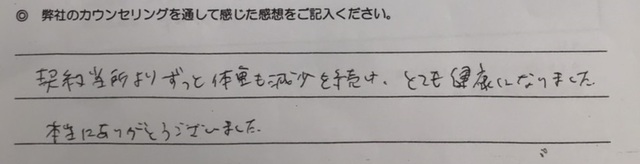 ◎ 弊社のカウンセリングを通して感じた感想をご記入ください。
契約当所よりずっと体重も減少を続け、とても健康になりました
本当にありがとうございました。